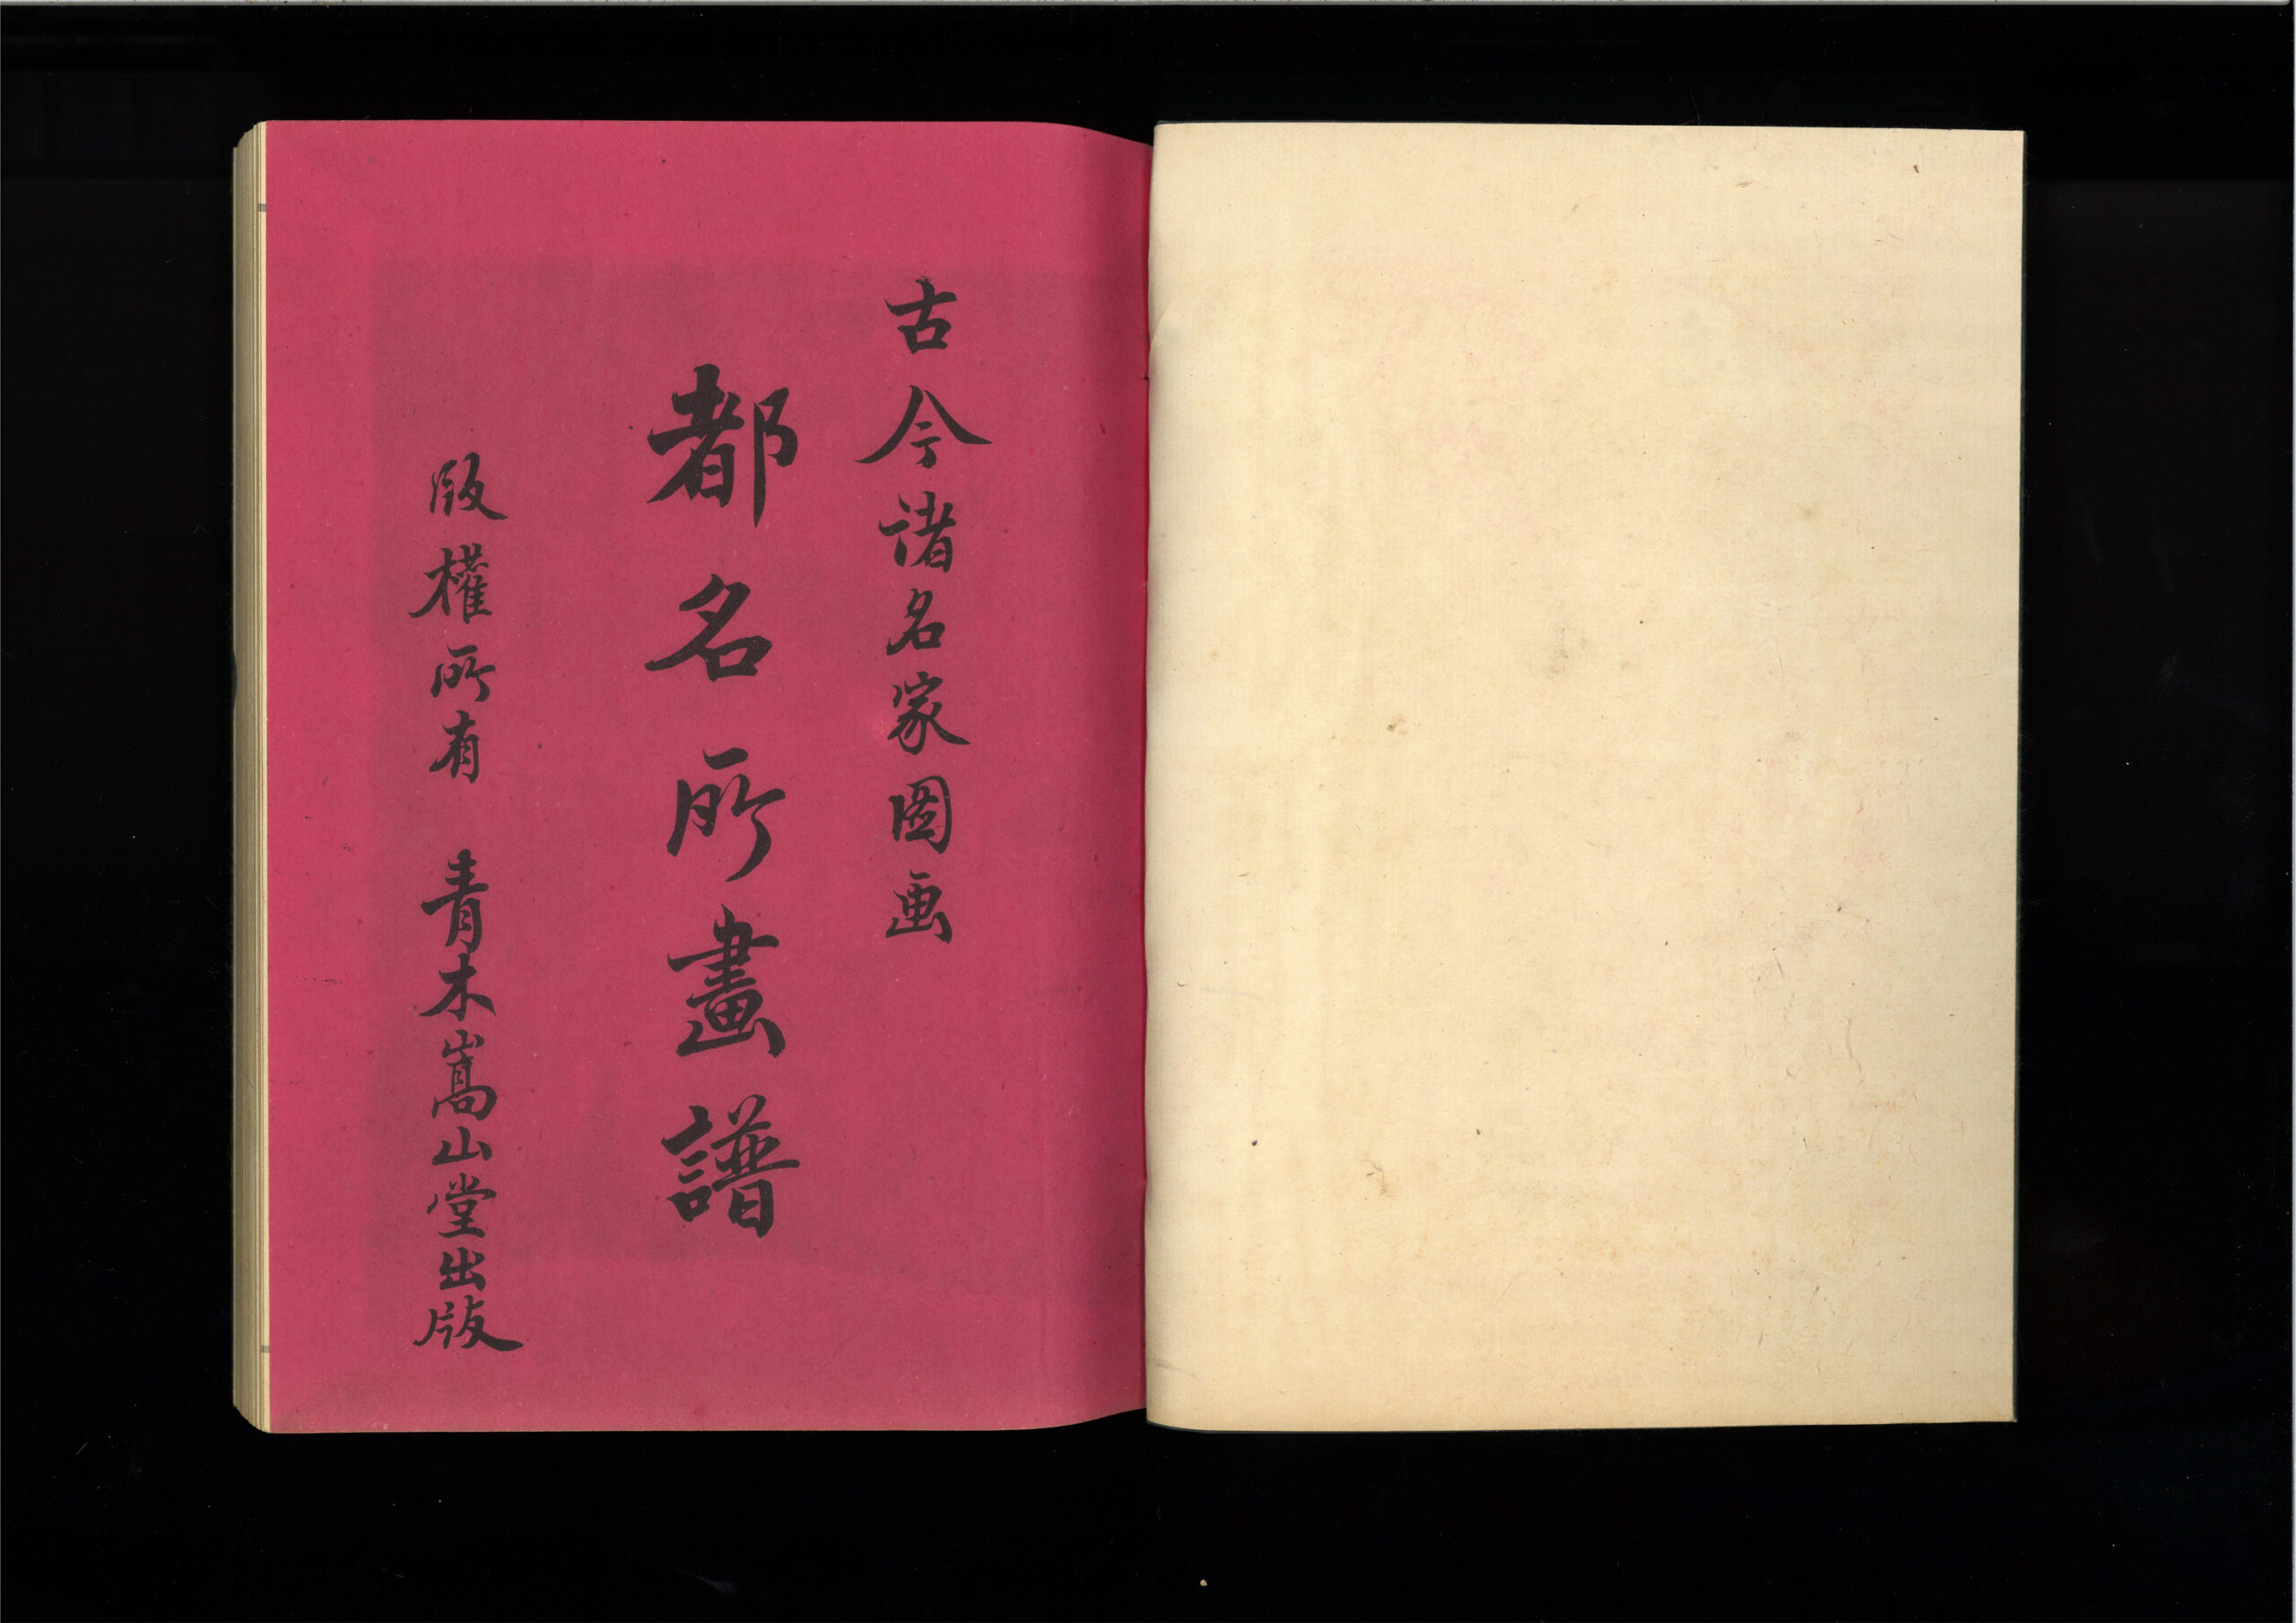 古今諸名家圖画
都名所畫譜
版權所有 青木嵩山堂出版